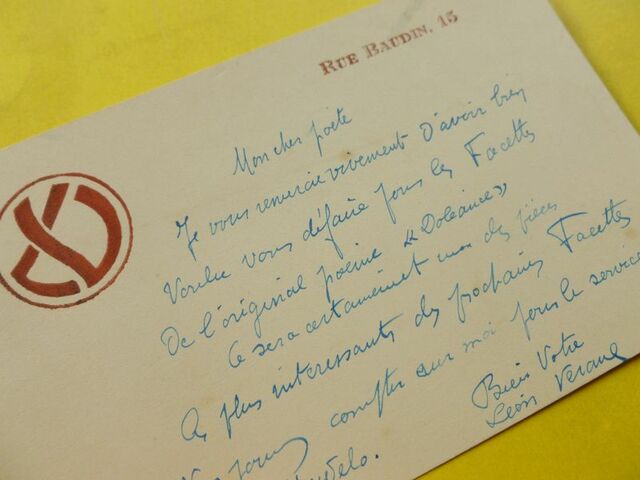 RUE BAUDIN. 15
Mon cher poète
Je vous remercie vivement d'avoir bien
voulu vous défaire pour les Facettes
De l'original poème "Doléances"
Ce sera certainement une des pièces
les plus intéressantes des prochaines Facettes
compter sur moi pour le service
Bien Votre
Léon Verane